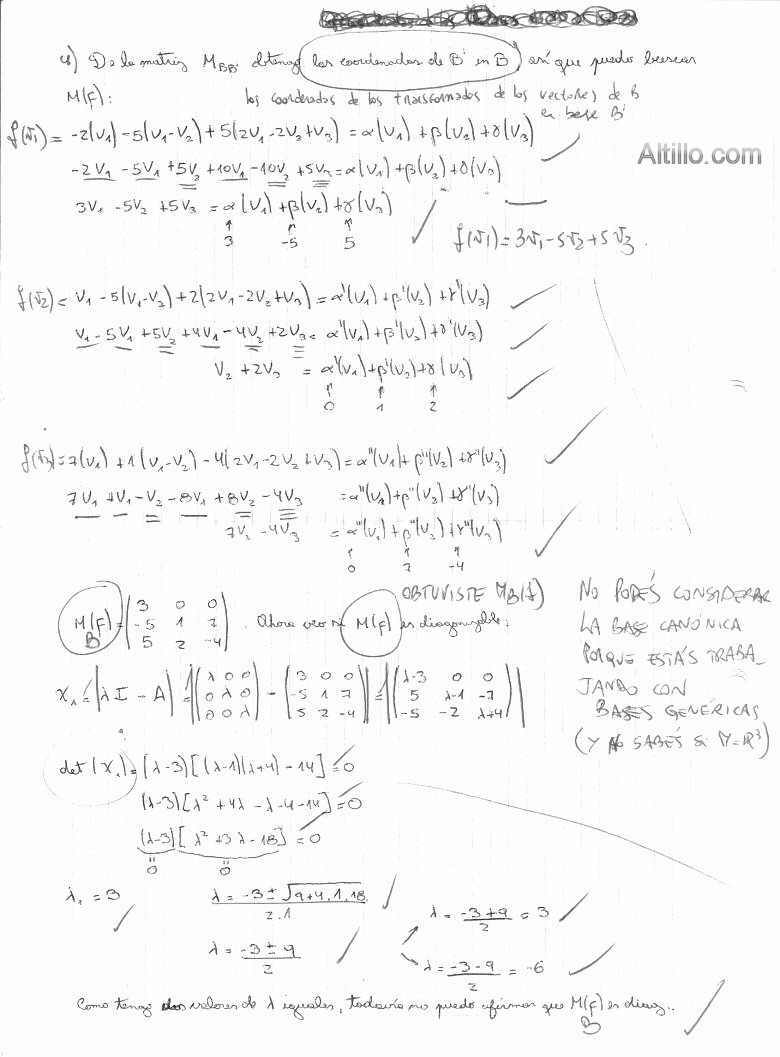 4) De la matriz M_BB' obtengo las coordenadas de B' en B, así que puedo buscar
M(F): los coordenadas de los transformados de los vectores de B
en base B'
Altillo.com
f(v₁) = -2(V₁) -5(V₁-V₂) + 5(2V₁-2V₂+V₃) = α(V₁) + β(V₂) + γ(V₃)
-2V₁ -5V₁ +5V₂ +10V₁ -10V₂ +5V₃ = α(V₁) + β(V₂) + γ(V₃)
3V₁ -5V₂ +5V₃ = α(V₁) + β(V₂) + γ(V₃)
3 -5 5
f(v₁) = 3v₁ -5v₂ + 5v₃.
f(v₂) = V₁ -5(V₁-V₂) + 2(2V₁-2V₂+V₃) = α'(V₁) + β'(V₂) + γ'(V₃)
V₁ -5V₁ +5V₂ +4V₁ -4V₂ +2V₃ = α'(V₁) + β'(V₂) + γ'(V₃)
V₂ +2V₃ = α'(V₁) + β'(V₂) + γ(V₃)
0 1 2
f(v₃) = 7(V₁) + 1(V₁-V₂) -4(2V₁-2V₂+V₃) = α''(V₁) + β''(V₂) + γ''(V₃)
7V₁ +V₁ -V₂ -8V₁ +8V₂ -4V₃ = α''(V₁) + β''(V₂) + γ''(V₃)
7V₂ -4V₃ = α''(V₁) + β''(V₂) + γ''(V₃)
0 7 -4
OBTUVISTE M_B(f)
M(F)
B
= ( 3 0 0
-5 1 7
5 2 -4 ) . Ahora veo si M(F) es diagonizable:
NO PODÉS CONSIDERAR
LA BASE CANÓNICA
PORQUE ESTÁS TRABA_
JANDO CON
BASES GENÉRICAS
(Y NO SABÉS SI V=ℝ³)
X₁ = |λI - A| = |( λ 0 0
0 λ 0
0 0 λ ) - ( 3 0 0
-5 1 7
5 2 -4 )| = |( λ-3 0 0
5 λ-1 -7
-5 -2 λ+4 )|
det(X₁) = (λ-3)[(λ-1)(λ+4) -14] = 0
(λ-3)[λ² +4λ -λ -4 -14] = 0
(λ-3)[λ² +3λ -18] = 0
0 0
λ₁ = 3
λ = -3 ± √9+4.1.18
2.1
λ = -3 ± 9
2
λ = -3+9 = 3
2
λ = -3-9 = -6
2
Como tengo dos valores de λ iguales, todavía no puedo afirmar que M(F) es diag..
B